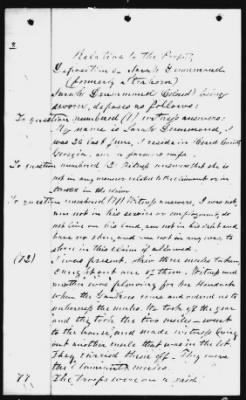 2
Relating to the Property
Deposition of Sarah Drummond
(formerly Strahorn)
Sarah Drummond (Colored) being
sworn, deposes as follows:
To question numbered (1) witness answers:
My name is Sarah Drummond, I
was 32 last June, I reside in
Georgia, am a farmers wife
To question numbered 2 Witness answers that she is
not in any manner related to the claimant or in-
terested in the claim
To question numbered witness answers, I was not,
am not in his service or employment, do
not live on his land, am not in his debt and
have no share, and am not in any way to
share in this claim if allowed.
(72) I was present. Saw three mules taken.
brought out one of them. Witness and
mother was planning for her
when the Yankees came and ordered us to
unharness the mules. We took off the gear
and they took the two mules - went
to the house, and made witness bring
out another mule that was in the lot.
They carried these off. They were
the Claimants mules.
77 The troops were on a raid